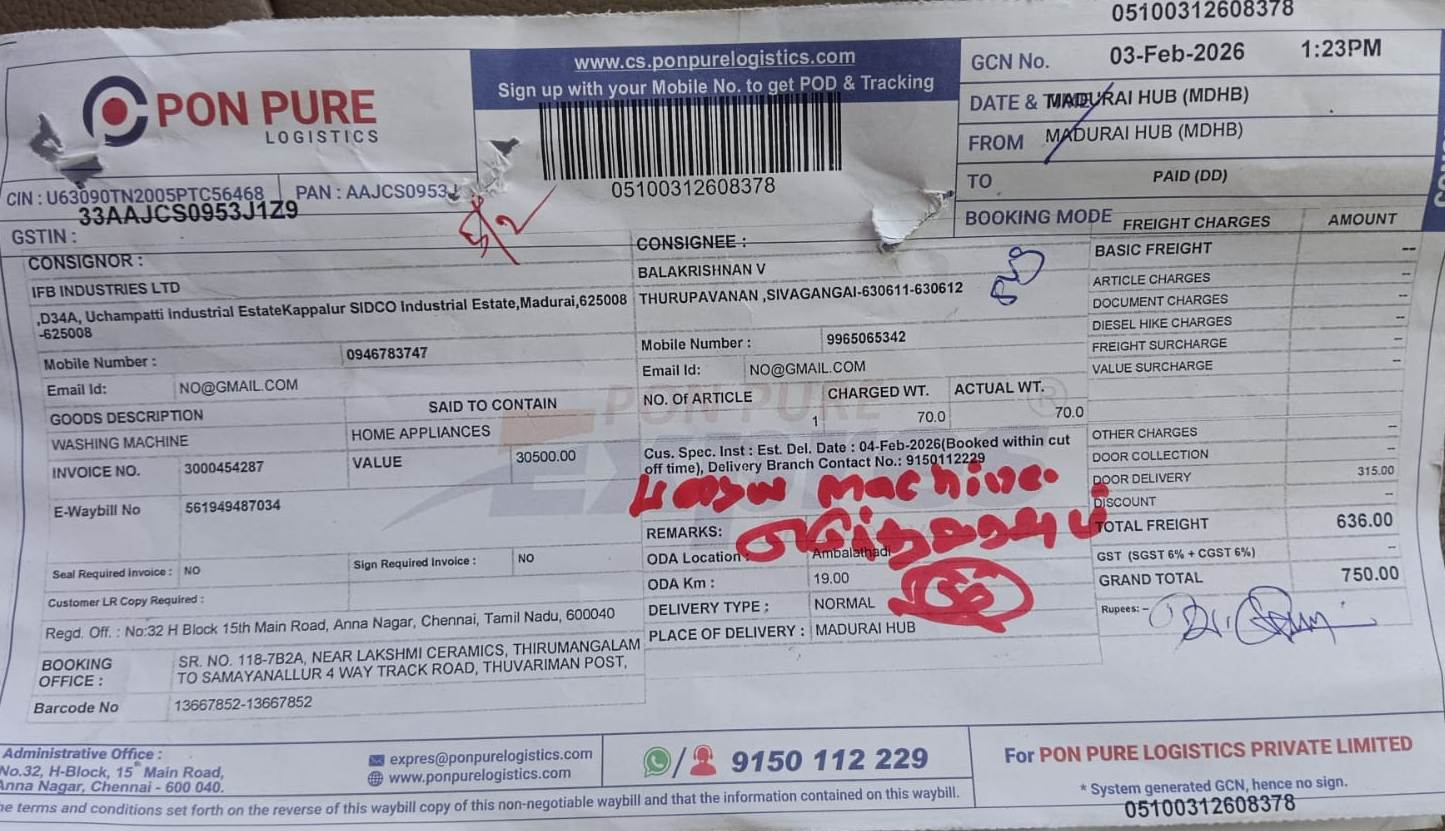 05100312608378
www.cs.ponpurelogistics.com
Sign up with your Mobile No. to get POD & Tracking
PON PURE
LOGISTICS
05100312608378
CIN : U63090TN2005PTC56468 PAN : AAJCS0953J
33AAJCS0953J1Z9
GSTIN :
GCN No. 03-Feb-2026 1:23PM
DATE & MADURAI HUB (MDHB)
FROM MADURAI HUB (MDHB)
TO PAID (DD)
BOOKING MODE
5/2
CONSIGNOR :
IFB INDUSTRIES LTD
,D34A, Uchampatti Industrial EstateKappalur SIDCO Industrial Estate,Madurai,625008
-625008
Mobile Number : 0946783747
Email Id: NO@GMAIL.COM
GOODS DESCRIPTION SAID TO CONTAIN
WASHING MACHINE HOME APPLIANCES
INVOICE NO. 3000454287 VALUE 30500.00
E-Waybill No 561949487034
Seal Required Invoice : NO Sign Required Invoice : NO
Customer LR Copy Required :
Regd. Off. : No:32 H Block 15th Main Road, Anna Nagar, Chennai, Tamil Nadu, 600040
BOOKING OFFICE : SR. NO. 118-7B2A, NEAR LAKSHMI CERAMICS, THIRUMANGALAM
TO SAMAYANALLUR 4 WAY TRACK ROAD, THUVARIMAN POST,
Barcode No 13667852-13667852
CONSIGNEE :
BALAKRISHNAN V
THURUPAVANAN ,SIVAGANGAI-630611-630612
Mobile Number : 9965065342
Email Id: NO@GMAIL.COM
NO. Of ARTICLE CHARGED WT. ACTUAL WT.
1 70.0 70.0
PON PURE
EXPRESS
Cus. Spec. Inst : Est. Del. Date : 04-Feb-2026(Booked within cut
off time), Delivery Branch Contact No.: 9150112229
machine
REMARKS:
ODA Location : Ambalathadi
ODA Km : 19.00
DELIVERY TYPE : NORMAL
PLACE OF DELIVERY : MADURAI HUB
FREIGHT CHARGES AMOUNT
BASIC FREIGHT --
ARTICLE CHARGES --
DOCUMENT CHARGES --
DIESEL HIKE CHARGES --
FREIGHT SURCHARGE --
VALUE SURCHARGE --
OTHER CHARGES --
DOOR COLLECTION --
DOOR DELIVERY 315.00
DISCOUNT --
TOTAL FREIGHT 636.00
GST (SGST 6% + CGST 6%) --
GRAND TOTAL 750.00
Rupees: -
Administrative Office :
No.32, H-Block, 15th Main Road,
Anna Nagar, Chennai - 600 040.
expres@ponpurelogistics.com
www.ponpurelogistics.com
9150 112 229
For PON PURE LOGISTICS PRIVATE LIMITED
* System generated GCN, hence no sign.
05100312608378
he terms and conditions set forth on the reverse of this waybill copy of this non-negotiable waybill and that the information contained on this waybill.